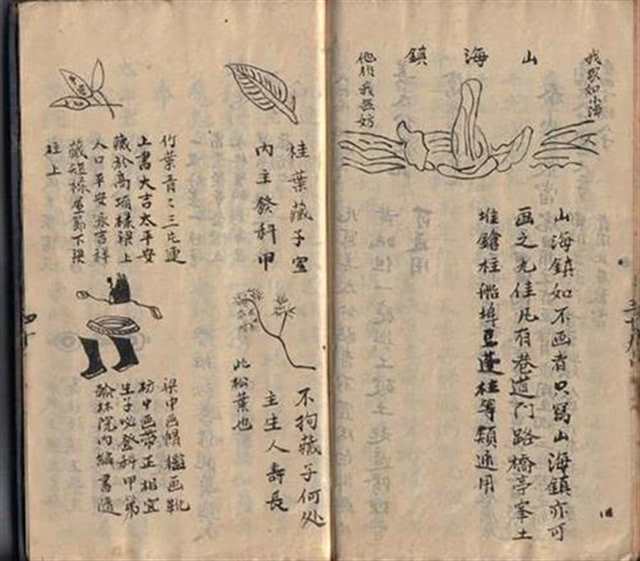 山海鎮
他作我無妨
山海鎮如不画者只寫山海鎮亦可
画之尤佳凡有巷道门路橋亭峯土
堆鎗柱船埠豆蓬柱等類通用
桂葉藏于室
内主發科甲
竹葉青〻三片連
上書大吉太平安
藏於高項樑梁上
人口平安永吉祥
柱上
不拘藏于何处
主生人壽長
此松葉也
梁中画帽檻画靴
枋中画帶正相宜
生子必登科甲第
翰林院内編書随